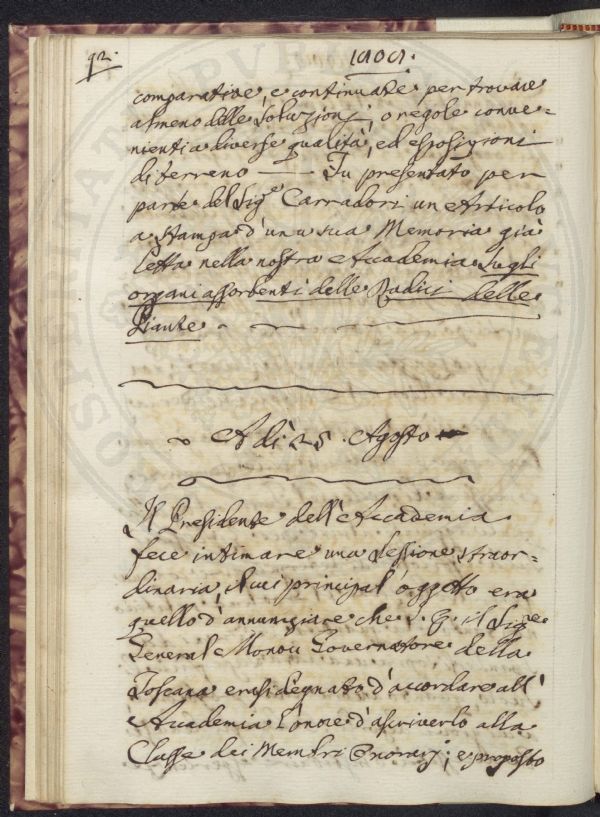 92.
1808.
comparative, e continuate per trovare
almeno delle Soluzionj, o regole conve=
nienti a diverse qualità, ed esposizioni
di terreno — Fu presentato per
parte del Sig.e Carradori un Articolo
a stampa d'una sua Memoria già
letta nella nostra Accademia Sugli
organi assorbenti delle Radici delle
Piante.
A dì 25. Agosto
Il Presidente dell'Accademia
fece intimare una Sessione straor=
dinaria, il cui principal oggetto era
quello d'annunziare che S. E. il Sig.e
General Menou Governatore della
Toscana erasi degnato d'accordare all'
Accademia l'onore d'ascriverlo alla
Classe dei Membri Onorarj; e proposto